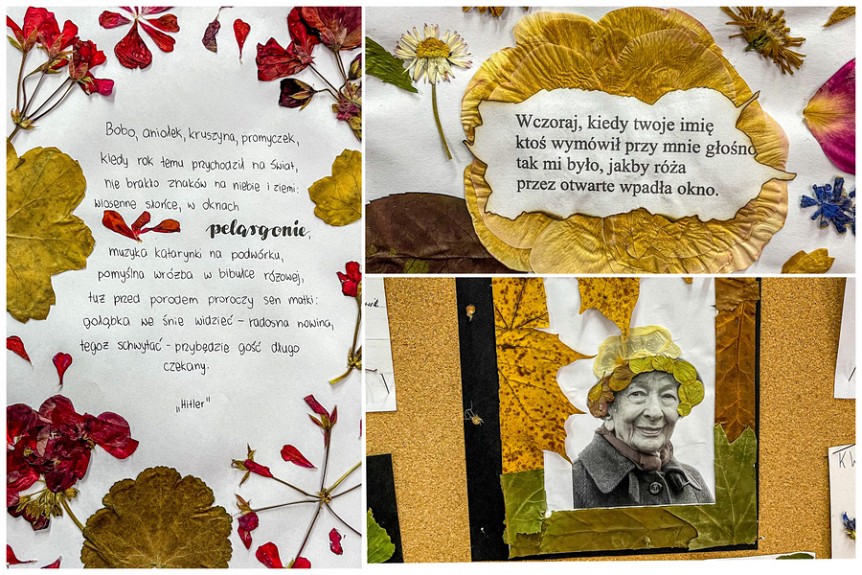 Bobo, aniołek, kruszyna, promyczek,
kiedy rok temu przychodził na świat,
nie brakło znaków na niebie i ziemi:
wiosenne słońce, w oknach
pelargonie,
muzyka katarynki na podwórku,
pomyślna wróżba w bibułce różowej,
tuż przed porodem proroczy sen matki:
gołąbka we śnie widzieć - radosna nowina,
tegoż schwytać - przybędzie gość długo
czekany.
"Hitler"
Wczoraj, kiedy twoje imię
ktoś wymówił przy mnie głośno
tak mi było, jakby róża
przez otwarte wpadła okno.